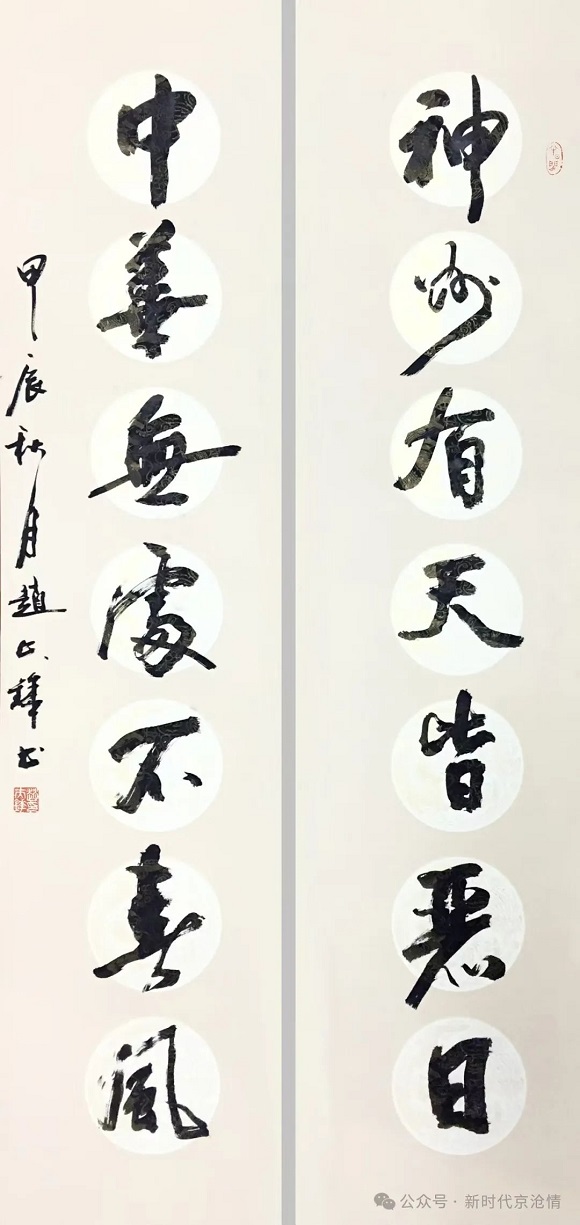 神州有天皆麗日
中華無處不春風
甲辰秋月趙書
公众号 · 新时代京沧情